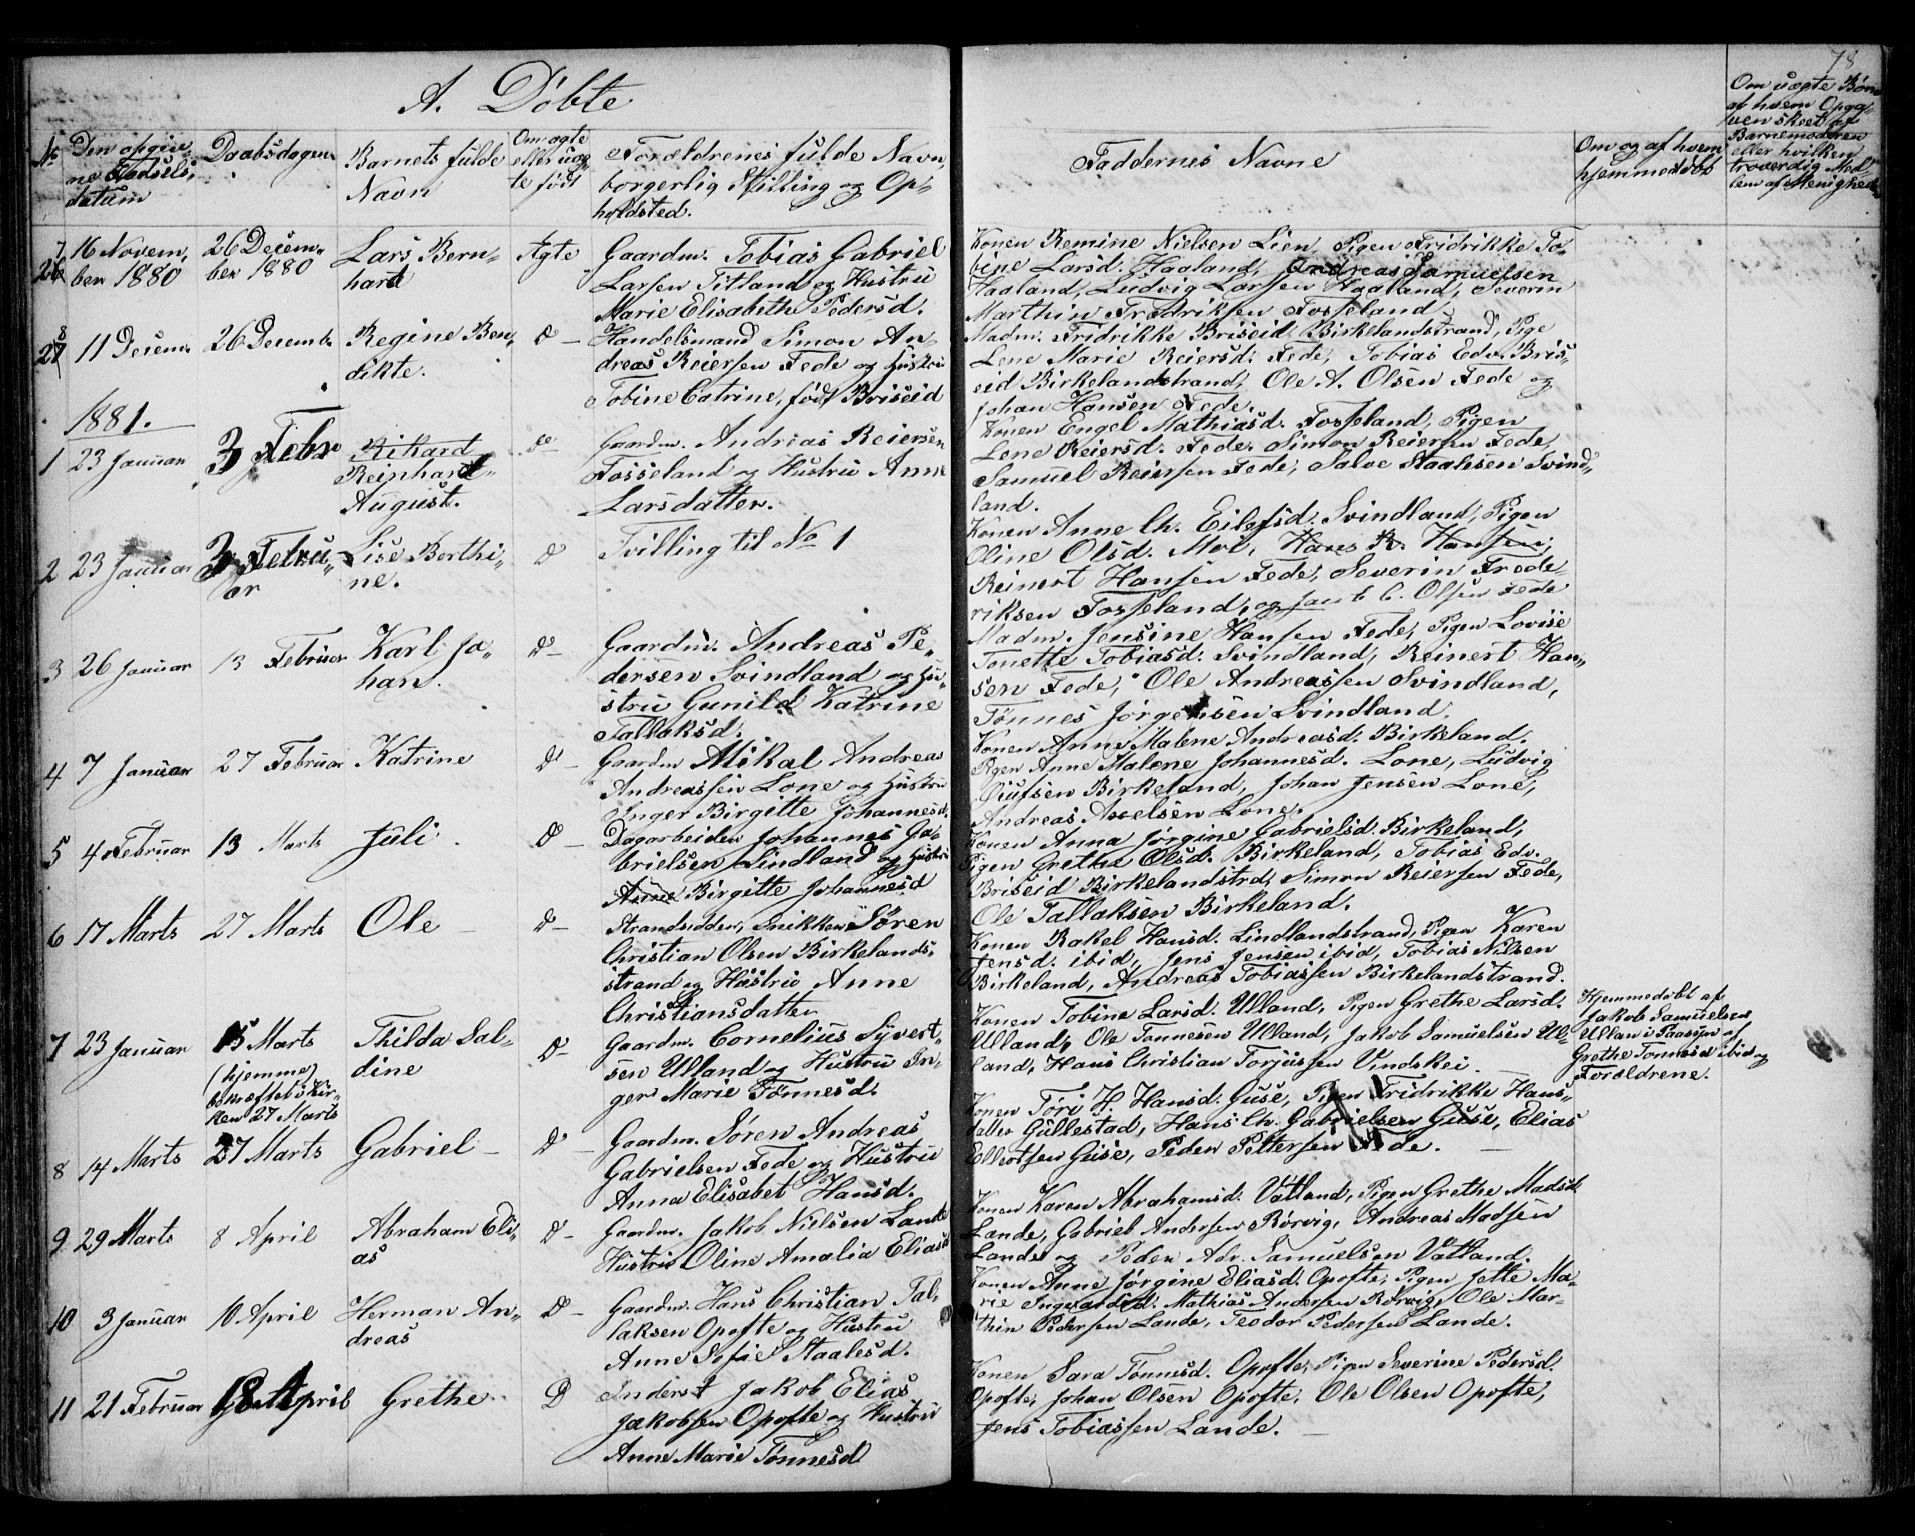 78
A. Döbte
No
Den opgiv-
ne Födsels-
datum
Daabsdagen
Barnets fulde
Navn
Om ægte
eller uæg-
te født
Forældrenes fulde Navn,
borgerlig Stilling og Op-
holdsted.
Faddernes Navne
Om og af hvem
hjemmedöbt
Om uægte Börn
af hvem Opga-
ven skeet af
Barnemoderen
eller hvilken
troværdig Med-
lem af Menighed
7
26
16 Novem-
ber 1880
26 Decem-
ber 1880
Lars Bern-
hard
Ægte
Gaardm. Tobias Gabriel
Larsen Titland og Hustru
Marie Elisabeth Pedersd.
Konen Remine Nielsen Lien, Pigen Fridrikke To-
bine Larsd. Haaland, Andreas Samuelsen
Haaland, Ludvig Larsen Haaland, Severin
Marthin Fredriksen Fosseland
8
27
11 Decem.
26 Decemb.
Regine Ben-
dikte.
D –
Handelsmand Simon An-
dreas Reiersen Fede og Hustru
Tobine Catrine, født Briseid
Madm. Fridrikke Briseid Birkelandstrand, Pige
Lene Marie Reiersd. Fede, Tobias Edv. Bris-
eid Birkelandstrand, Ole A. Olsen Fede og
Johan Hansen Fede.
1881.
1
23 Januar
3 Febr
Rikard
Reinhard
August.
D –
Gaardm. Andreas Reiersen
Fosseland og Hustru Anne
Larsdatter.
Konen Engel Mathiasd. Fosseland, Pigen
Lene Reiersd. Fede, Simon Reiersen Fede,
Samuel Reiersen Fede, Salve Staalesen Svind-
land.
2
23 Januar
3 Febru-
ar
Lise Berthi-
ne.
D
Tvilling til No 1
Konen Anne Ch. Eilefsd. Svindland, Pigen
Oline Olsd. Moi, Hans R. Hansen,
Reinert Hansen Fede, Severin Frede-
riksen Fosseland, og Jacob C. Olsen Fede
3
26 Januar
13 Februar
Karl Jo-
han.
D –
Gaardm. Andreas Pe-
dersen Svindland og Hu-
stru Gunild Katrine
Tallaksd.
Madm. Jensine Hansen Fede, Pigen Lovise
Tonette Tobiasd. Svindland, Reinert Han-
sen Fede, Ole Andreassen Svindland,
Tønnes Jørgensen Svindland.
4
7 Januar
27 Februar
Katrine
D –
Gaardm Mikal Andreas
Andreassen Lone og Hustru
Inger Birgitte Johannesd.
Konen Anne Malene Andreasd. Birkeland,
Pigen Anne Malene Johannesd. Lone, Ludvig
Oiufsen Birkeland, Johan Jensen Lone,
Andreas Axelsen Lone.
5
4 Februar
13 Marts
Juli
D –
Dagarbeider Johannes Ga-
brielsen Lindland og Hustru
Anne Birgitte Johannesd
Konen Anna Jørgine Gabrielsd. Birkeland,
Pigen Grethe Olsd. Birkeland, Tobias Edv.
Briseid Birkelandstrd, Simon Reiersen Fede,
Ole Tallaksen Birkeland.
6
17 Marts
27 Marts
Ole –
D –
Strandsidder, Snikker Søren
Christian Olsen Birkelands-
strand og Hustru Anne
Christiansdatter
Konen Rakel Hansd. Lindlandstrand, Pigen Karen
Jensd. ibid, Jens Jensen ibid, Tobias Nilsen
Birkeland, Andreas Tobiassen Birkelandstrand.
7
23 Januar
15 Marts
(hjemme)
bekræftet i Kir-
ken 27 Marts
Thilda Sal-
dine
D –
Gaardm. Cornelius Syvert-
sen Ulland og Hustru In-
ger Marie Tønnesd.
Konen Tobine Larsd. Ulland, Pigen Grethe Larsd.
Ulland, Ole Tonnesen Ulland, Jakob Samuelsen Ul-
land, Hans Christian Torjussen Vindskei.
Hjemmedöbt af
Jakob Samuelsen
Ullan i Paasyn af
Grethe Tonnesd ibid og
Forældrene.
8
14 Marts
27 Marts
Gabriel –
D –
Gaardm. Søren Andreas
Gabrielsen Fede og Hustru
Anna Elisabet Hansd.
Konen Töri H. Hansd. Guse, Pigen Fridrikke Hans-
datter Gullestad, Hans Ch. Gabrielsen Guse, Elias
Ellertsen Guse, Peder Pettersen Fede.
9
29 Marts
8 April
Abraham Eli-
as
D –
Gaardm. Jakob Nielsen Lande
Hustru Oline Amalia Eliasd
Konen Karen Abrahamsd. Vatland, Pigen Grethe Madsd.
Lande, Gabriel Andersen Rörvig, Andreas Madsen
Lande og Peder Adr. Samuelsen Vatland.
10
3 Januar
10 April
Herman An-
dreas
D –
Gaardm. Hans Christian Tal-
laksen Opofte og Hustru
Anne Sofie Staalesd.
Konen Anne Jørgine Eliasd. Opofte, Pigen Jette Ma-
rie Ingvardsd. Mathias Andersen Rörvig, Ole Mar-
thin Pedersen Lande, Teodor Pedersen Lande.
11
21 Februar
18 April
Grethe
D
Inderst Jakob Elias
Jakobsen Opofte og Hustru
Anne Marie Tønnesd
Konen Sara Tönnesd. Opofte, Pigen Severine Pedersd.
Opofte, Johan Olsen Opofte, Ole Olsen Opofte,
Jens Tobiassen Lande.